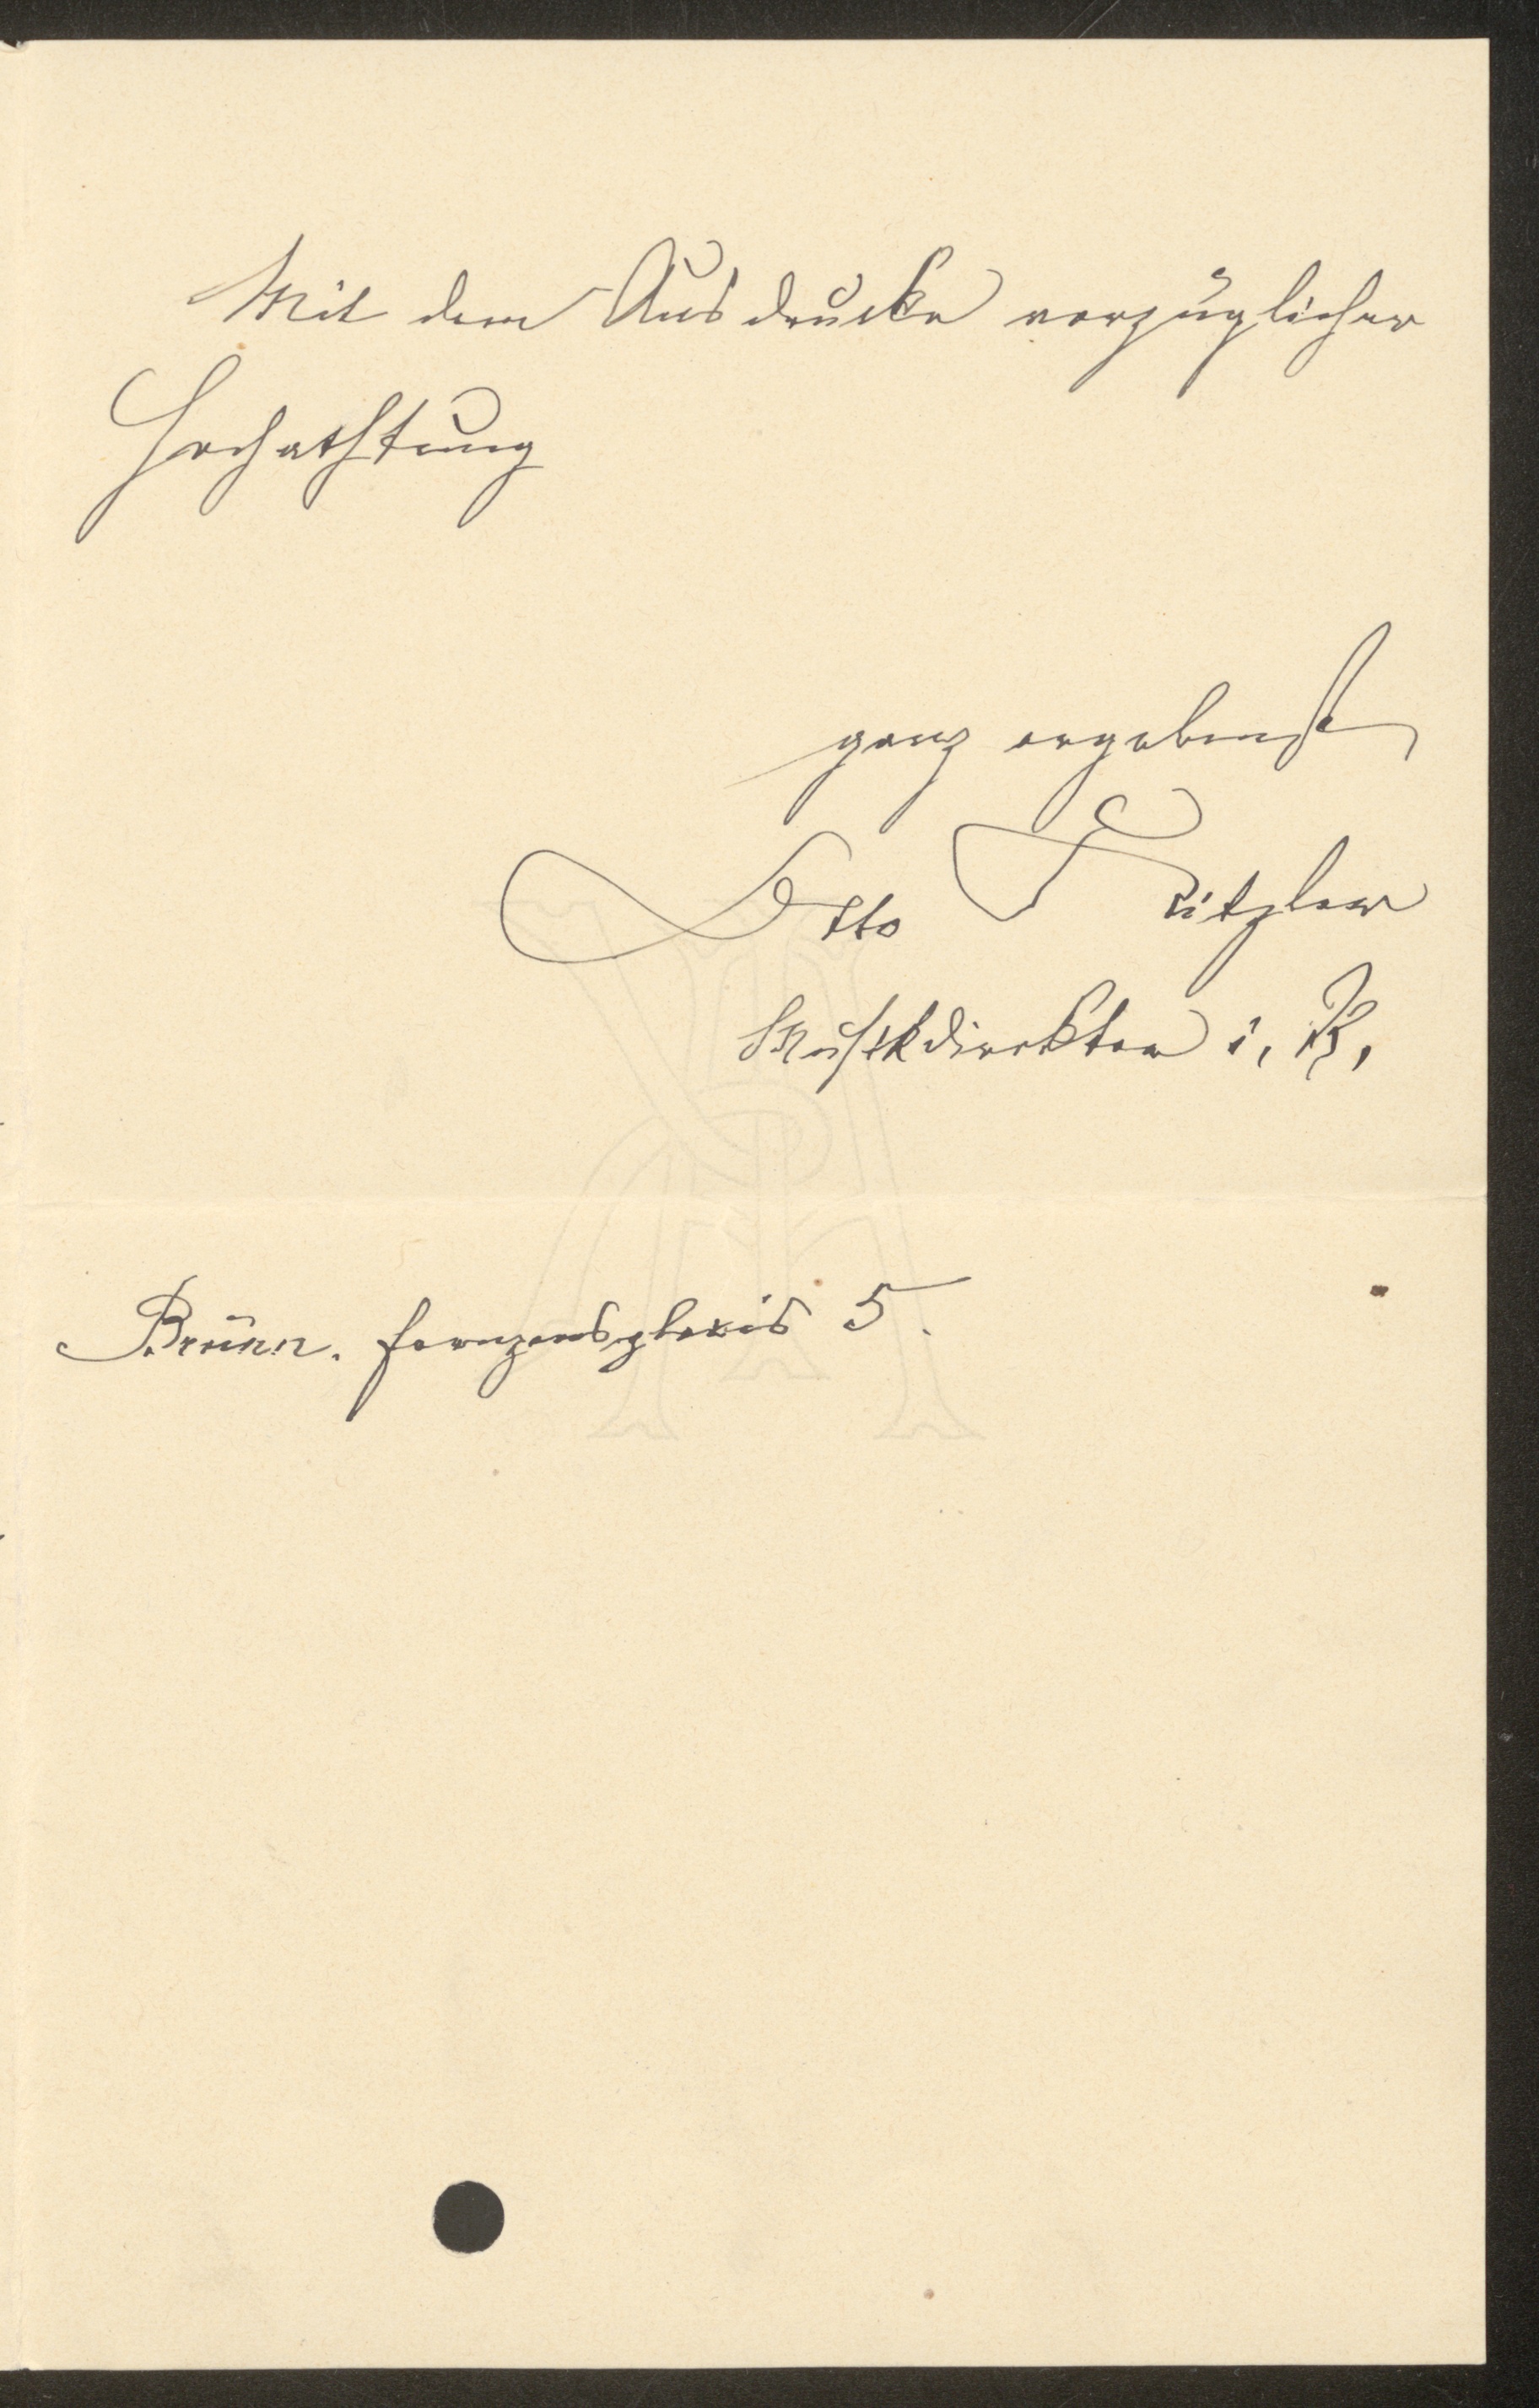 Mit dem Ausdrucke vorzüglicher
Hochachtung
ganz ergebenst
Otto Kitzler
Musikdirektor i. P.
Brünn. 5.